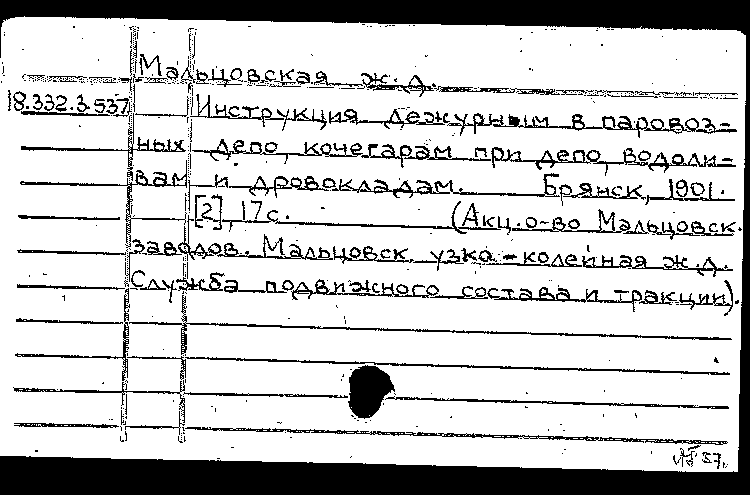 Мальцовская ж.д.
18.332.3.537 Инструкция дежурным в паровоз-
ных депо, кочегарам при депо, водоли-
вам и дровокладам. Брянск, 1901.
[2], 17 с. (Акц. о-во Мальцовск.
заводов. Мальцовск. узко-колейная ж.д.
Служба подвижного состава и тракции).
57.